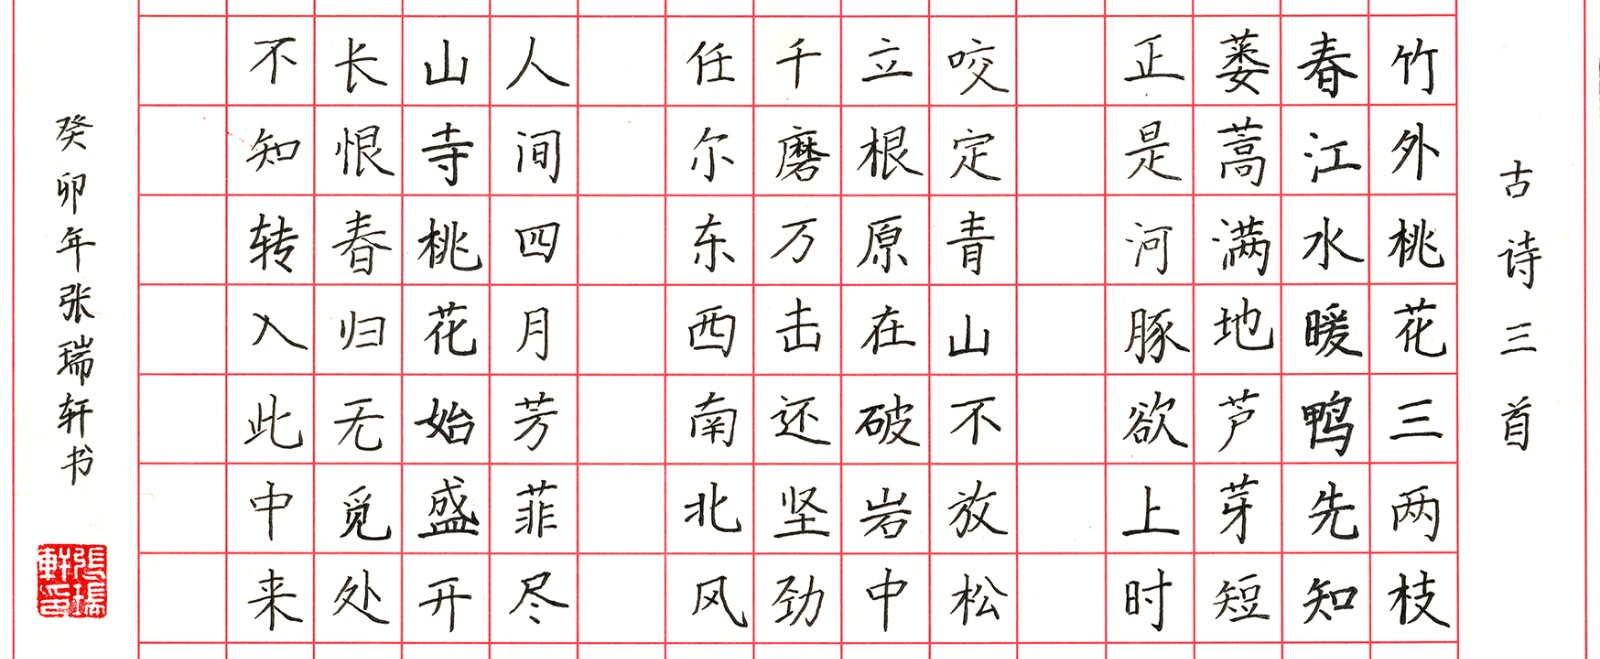 古诗三首
竹外桃花三两枝
春江水暖鸭先知
蒌蒿满地芦芽短
正是河豚欲上时
咬定青山不放松
立根原在破岩中
千磨万击还坚劲
任尔东西南北风
人间四月芳菲尽
山寺桃花始盛开
长恨春归无觅处
不知转入此中来
癸卯年张瑞轩书
張瑞軒印